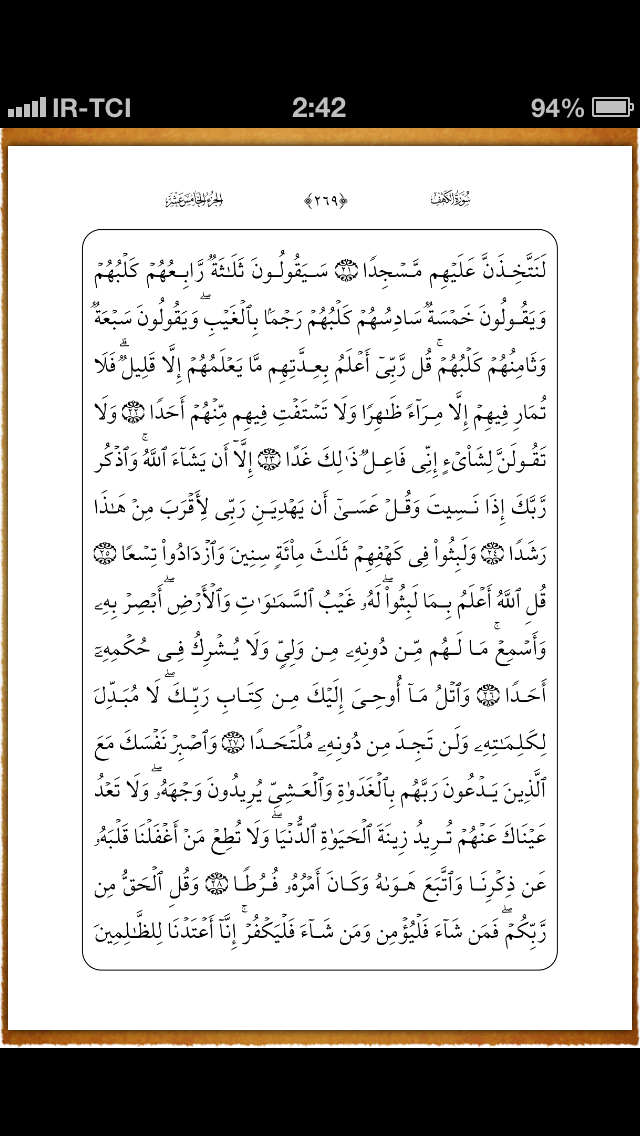 IR-TCI 2:42 94%
سُورَةُ الكَهْفِ ﴿٢٦٩﴾ الجُزْءُ الخَامِسَ عَشَرَ
لَنَتَّخِذَنَّ عَلَيْهِم مَّسْجِدًا ٢١ سَيَقُولُونَ ثَلَـٰثَةٌ رَّابِعُهُمْ كَلْبُهُمْ
وَيَقُولُونَ خَمْسَةٌ سَادِسُهُمْ كَلْبُهُمْ رَجْمًۢا بِٱلْغَيْبِ ۖ وَيَقُولُونَ سَبْعَةٌ
وَثَامِنُهُمْ كَلْبُهُمْ ۚ قُل رَّبِّىٓ أَعْلَمُ بِعِدَّتِهِم مَّا يَعْلَمُهُمْ إِلَّا قَلِيلٌ ۗ فَلَا
تُمَارِ فِيهِمْ إِلَّا مِرَآءً ظَـٰهِرًا وَلَا تَسْتَفْتِ فِيهِم مِّنْهُمْ أَحَدًا ٢٢ وَلَا
تَقُولَنَّ لِشَا۟ىْءٍ إِنِّى فَاعِلٌ ذَٰلِكَ غَدًا ٢٣ إِلَّآ أَن يَشَآءَ ٱللَّهُ ۚ وَٱذْكُر
رَّبَّكَ إِذَا نَسِيتَ وَقُلْ عَسَىٰٓ أَن يَهْدِيَنِ رَبِّى لِأَقْرَبَ مِنْ هَـٰذَا
رَشَدًا ٢٤ وَلَبِثُوا۟ فِى كَهْفِهِمْ ثَلَـٰثَ مِا۟ئَةٍ سِنِينَ وَٱزْدَادُوا۟ تِسْعًا ٢٥
قُلِ ٱللَّهُ أَعْلَمُ بِمَا لَبِثُوا۟ ۖ لَهُۥ غَيْبُ ٱلسَّمَـٰوَٰتِ وَٱلْأَرْضِ ۖ أَبْصِرْ بِهِۦ
وَأَسْمِعْ ۚ مَا لَهُم مِّن دُونِهِۦ مِن وَلِىٍّ وَلَا يُشْرِكُ فِى حُكْمِهِۦٓ
أَحَدًا ٢٦ وَٱتْلُ مَآ أُوحِىَ إِلَيْكَ مِن كِتَابِ رَبِّكَ ۖ لَا مُبَدِّلَ
لِكَلِمَـٰتِهِۦ وَلَن تَجِدَ مِن دُونِهِۦ مُلْتَحَدًا ٢٧ وَٱصْبِرْ نَفْسَكَ مَعَ
ٱلَّذِينَ يَدْعُونَ رَبَّهُم بِٱلْغَدَوٰةِ وَٱلْعَشِىِّ يُرِيدُونَ وَجْهَهُۥ ۖ وَلَا تَعْدُ
عَيْنَاكَ عَنْهُمْ تُرِيدُ زِينَةَ ٱلْحَيَوٰةِ ٱلدُّنْيَا ۖ وَلَا تُطِعْ مَنْ أَغْفَلْنَا قَلْبَهُۥ
عَن ذِكْرِنَا وَٱتَّبَعَ هَوَىٰهُ وَكَانَ أَمْرُهُۥ فُرُطًا ٢٨ وَقُلِ ٱلْحَقُّ مِن
رَّبِّكُمْ ۖ فَمَن شَآءَ فَلْيُؤْمِن وَمَن شَآءَ فَلْيَكْفُرْ ۚ إِنَّآ أَعْتَدْنَا لِلظَّـٰلِمِينَ